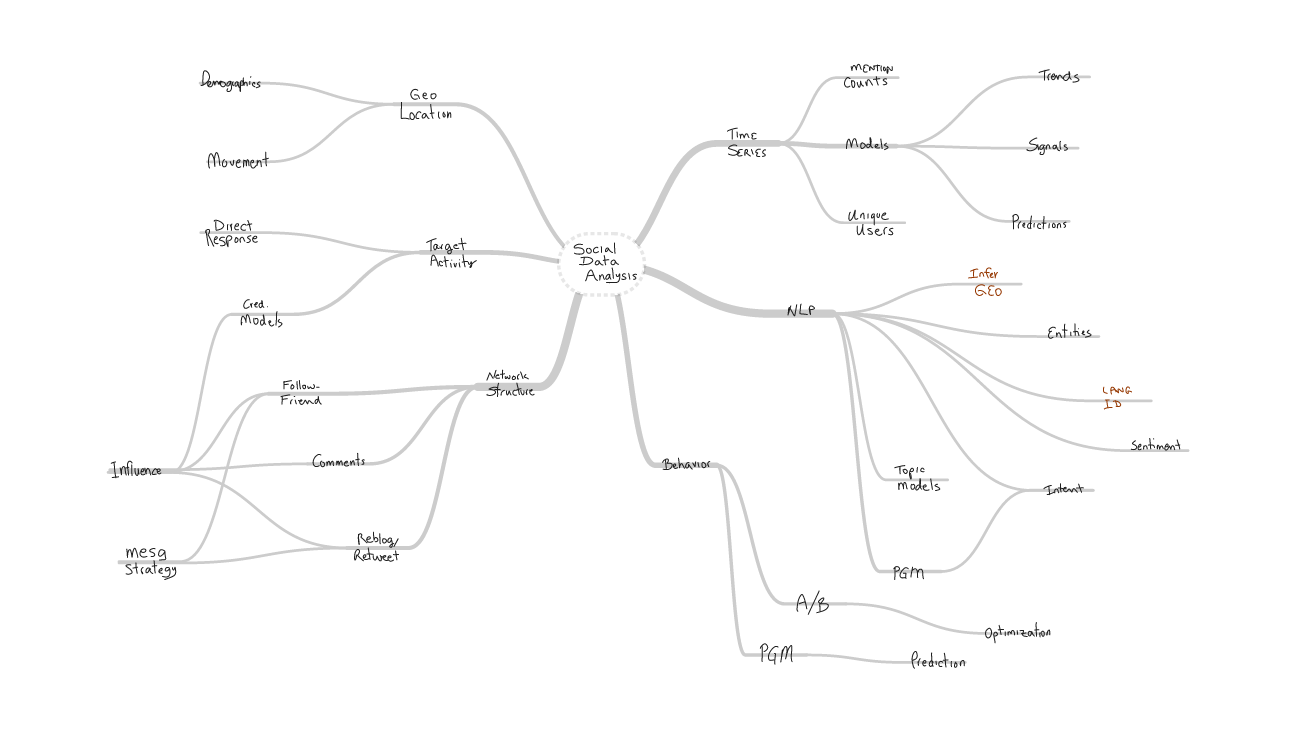 Social
Data
Analysis
Geo
Location
Demographics
Movement
Target
Activity
Direct
Response
Cred.
Models
Network
Structure
Follow-
Friend
Comments
Reblog/
Retweet
Influence
mesg
Strategy
TIME
SERIES
MENTION
Counts
Models
Trends
Signals
Predictions
Unique
Users
NLP
Infer
GEO
Entities
LANG
ID
Sentiment
Intent
Topic
Models
PGM
Behavior
A/B
Optimization
PGM
Prediction